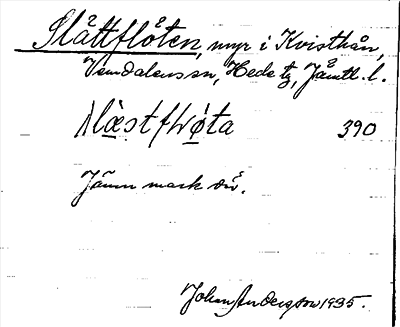 Slåttflåten, myr i Kvisthån,
Vemdalens sn, Hede tg, Jämtl. l.
390
Jämn mark där.
Johan Andersson 1935.